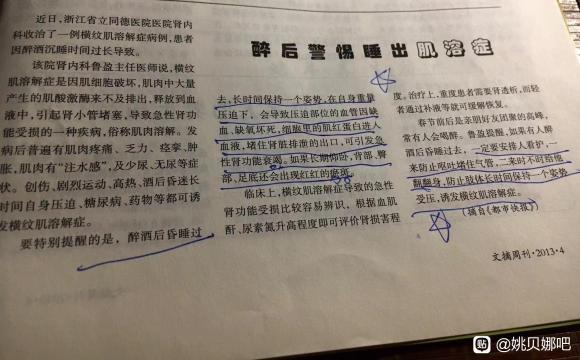 醉后警惕睡出肌溶症
近日，浙江省立同德医院医院肾内
科收治了一例横纹肌溶解症病例，患者
因醉酒沉睡时间过长导致。
该院肾内科鲁盈主任医师说，横纹
肌溶解症是因肌细胞破坏，肌肉中大量
产生的肌酸激酶来不及排出，释放到血
液中，引起肾小管堵塞，导致急性肾功
能受损的一种疾病，俗称肌肉溶解。发
病后普遍有肌肉疼痛、乏力、痉挛、肿
胀，肌肉有“注水感”，及少尿、无尿等症
状。创伤、剧烈运动、高热、酒后昏迷长
时间自身压迫、糖尿病、药物等都可诱
发横纹肌溶解症。
要特别提醒的是，醉酒后昏睡过
去，长时间保持一个姿势，在自身重量
压迫下，会导致压迫部位的血管因缺
血、缺氧坏死，细胞里的肌红蛋白进入
血液，堵住肾脏排泄的出口，可引发急
性肾功能衰竭。如果长期仰卧，背部、臀
部、足底还会出现红红的瘀斑。
临床上，横纹肌溶解症导致的急性
肾功能受损比较容易辨识，根据血肌
酐、尿素氮升高程度即可评价肾损害程
度。治疗上，重度患者需要肾透析，而轻
者通过补液等就可缓解恢复。
春节前后是亲朋好友团聚的高峰，
常有人会喝醉。鲁盈提醒，如果有人醉
酒后昏睡过去，一定要安排人看护，一
来防止呕吐堵住气管，二来时不时给他
翻翻身，防止肢体长时间保持一个姿势
受压，诱发横纹肌溶解症。
（摘自《都市快报》）
文摘周刊·2013·4
贴 @姚贝娜吧